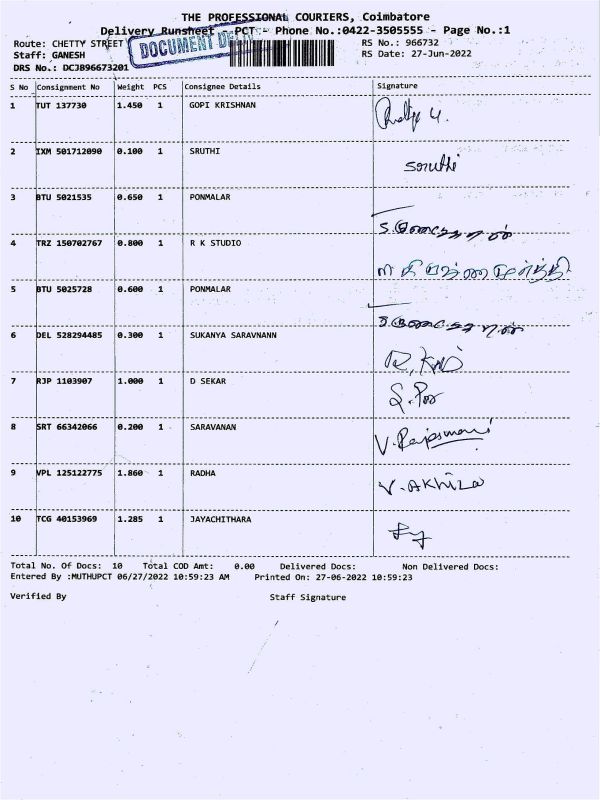 THE PROFESSIONAL COURIERS, Coimbatore
Delivery Runsheet - PCT - Phone No.:0422-3505555 - Page No.:1
Route: CHETTY STREET
RS No.: 966732
Staff: GANESH
RS Date: 27-Jun-2022
DRS No.: DCJB96673201
DOCUMENT
S No Consignment No Weight PCS Consignee Details Signature
1 TUT 137730 1.450 1 GOPI KRISHNAN
2 IXM 501712090 0.100 1 SRUTHI
Sruthi
3 BTU 5021535 0.650 1 PONMALAR
4 TRZ 150702767 0.800 1 R K STUDIO
5 BTU 5025728 0.600 1 PONMALAR
6 DEL 528294485 0.300 1 SUKANYA SARAVNANN
7 RJP 1103907 1.000 1 D SEKAR
8 SRT 66342066 0.200 1 SARAVANAN
9 VPL 125122775 1.860 1 RADHA
V. Akhila
10 TCG 40153969 1.285 1 JAYACHITHARA
Total No. Of Docs: 10 Total COD Amt: 0.00 Delivered Docs: Non Delivered Docs:
Entered By :MUTHUPCT 06/27/2022 10:59:23 AM Printed On: 27-06-2022 10:59:23
Verified By Staff Signature